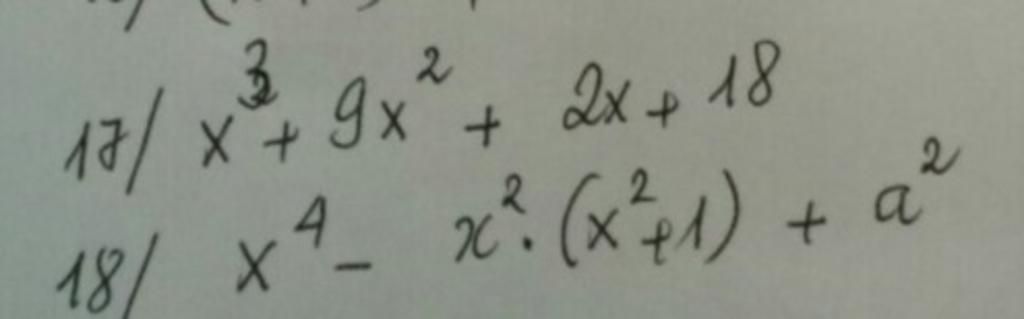 17/ x³ + 9x² + 2x + 18
18/ x⁴ - x² . (x² + 1) + a²